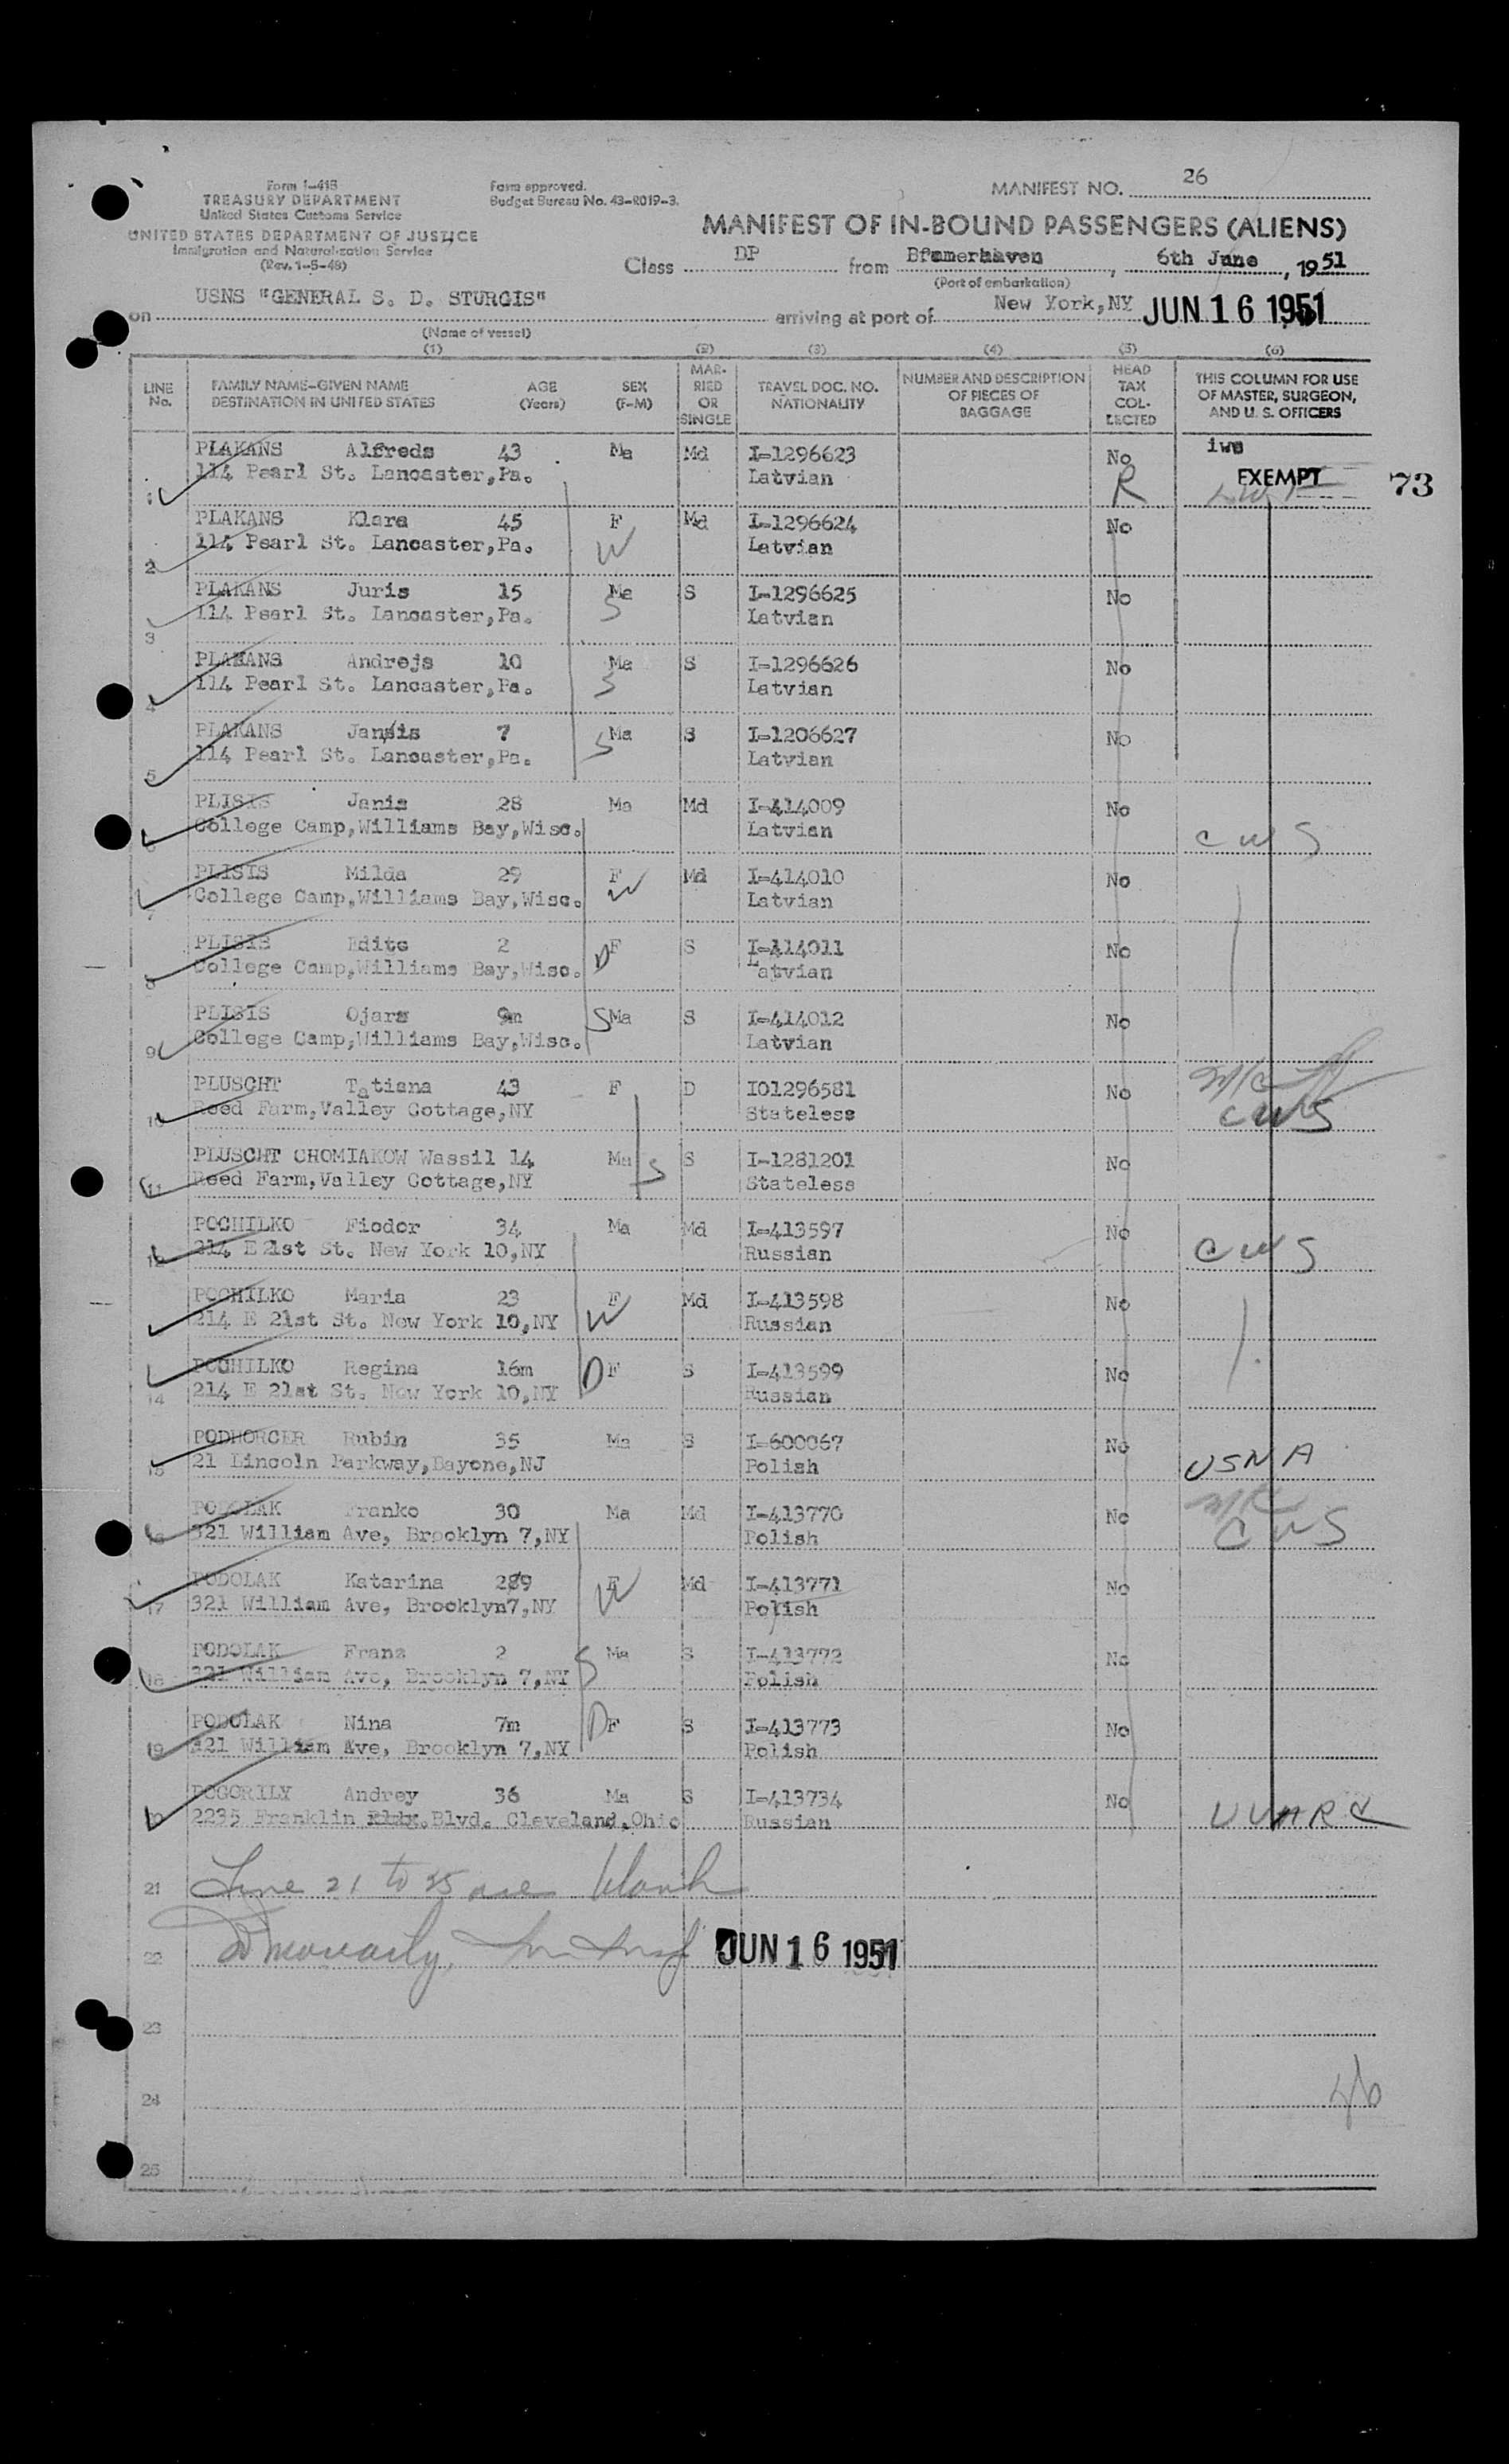 Form I-415
TREASURY DEPARTMENT
United States Customs Service
UNITED STATES DEPARTMENT OF JUSTICE
Immigration and Naturalization Service
(Rev. 1-5-48)
Form approved.
Budget Bureau No. 43-R019-3.
MANIFEST NO. 26
MANIFEST OF IN-BOUND PASSENGERS (ALIENS)
Class DP from Bremerhaven, 6th June, 1951
(Port of embarkation)
on USNS "GENERAL S. D. STURGIS" arriving at port of New York,NY JUN 16 1951
(Name of vessel)
(1) (2) (3) (4) (5) (6)
LINE No. FAMILY NAME-GIVEN NAME DESTINATION IN UNITED STATES AGE (Years) SEX (F-M) MARRIED OR SINGLE TRAVEL DOC. NO. NATIONALITY NUMBER AND DESCRIPTION OF PIECES OF BAGGAGE HEAD TAX COLLECTED THIS COLUMN FOR USE OF MASTER, SURGEON, AND U. S. OFFICERS
PLAKANS Alfreds 43 Ma Md I-1296623 No iws
1 114 Pearl St. Lancaster,Pa. Latvian R EXEMPT 73
PLAKANS Klara 45 F Md I-1296624 No
2 114 Pearl St. Lancaster,Pa. W Latvian
PLAKANS Juris 15 Ma S I-1296625 No
3 114 Pearl St. Lancaster,Pa. S Latvian
PLAKANS Andrejs 10 Ma S I-1296626 No
4 114 Pearl St. Lancaster,Pa. S Latvian
PLAKANS Jansis 7 S Ma S I-1206627 No
5 114 Pearl St. Lancaster,Pa. Latvian
PLISIS Janis 28 Ma Md I-414009 No
6 College Camp,Williams Bay,Wisc. Latvian CWS
PLISIS Milda 29 F Md I-414010 No
7 College Camp,Williams Bay,Wisc. W Latvian
PLISIS Edite 2 D F S I-414011 No
8 College Camp,Williams Bay,Wisc. Latvian
PLISIS Ojars 9m S Ma S I-414012 No
9 College Camp,Williams Bay,Wisc. Latvian
PLUSCHT Tatiana 43 F D I01296581 No
10 Reed Farm,Valley Cottage,NY Stateless CWS
PLUSCHT CHOMIAKOW Wassil 14 Ma S I-1281201 No
11 Reed Farm,Valley Cottage,NY S Stateless
POCHILKO Fiodor 34 Ma Md I-413597 No
12 214 E 21st St. New York 10,NY Russian CWS
POCHILKO Maria 23 F Md I-413598 No
214 E 21st St. New York 10,NY W Russian
POCHILKO Regina 16m D F S I-413599 No
14 214 E 21st St. New York 10,NY Russian
PODHORCER Rubin 35 Ma S I-600067 No
15 21 Lincoln Parkway,Bayone,NJ Polish USNA
PODOLAK Franko 30 Ma Md I-413770 No
16 321 William Ave, Brooklyn 7,NY Polish CWS
PODOLAK Katarina 289 F Md I-413771 No
17 321 William Ave, Brooklyn7,NY W Polish
PODOLAK Franz 2 Ma S I-413772 No
18 321 William Ave, Brooklyn 7,NY S Polish
PODOLAK Nina 7m D F S I-413773 No
19 321 William Ave, Brooklyn 7,NY Polish
POGORILY Andrey 36 Ma S I-413734 No
20 2235 Franklin Blvd. Cleveland,Ohio Russian UUARC
21 Line 21 to 25 are blank
22 JUN 16 1951
23
24
25